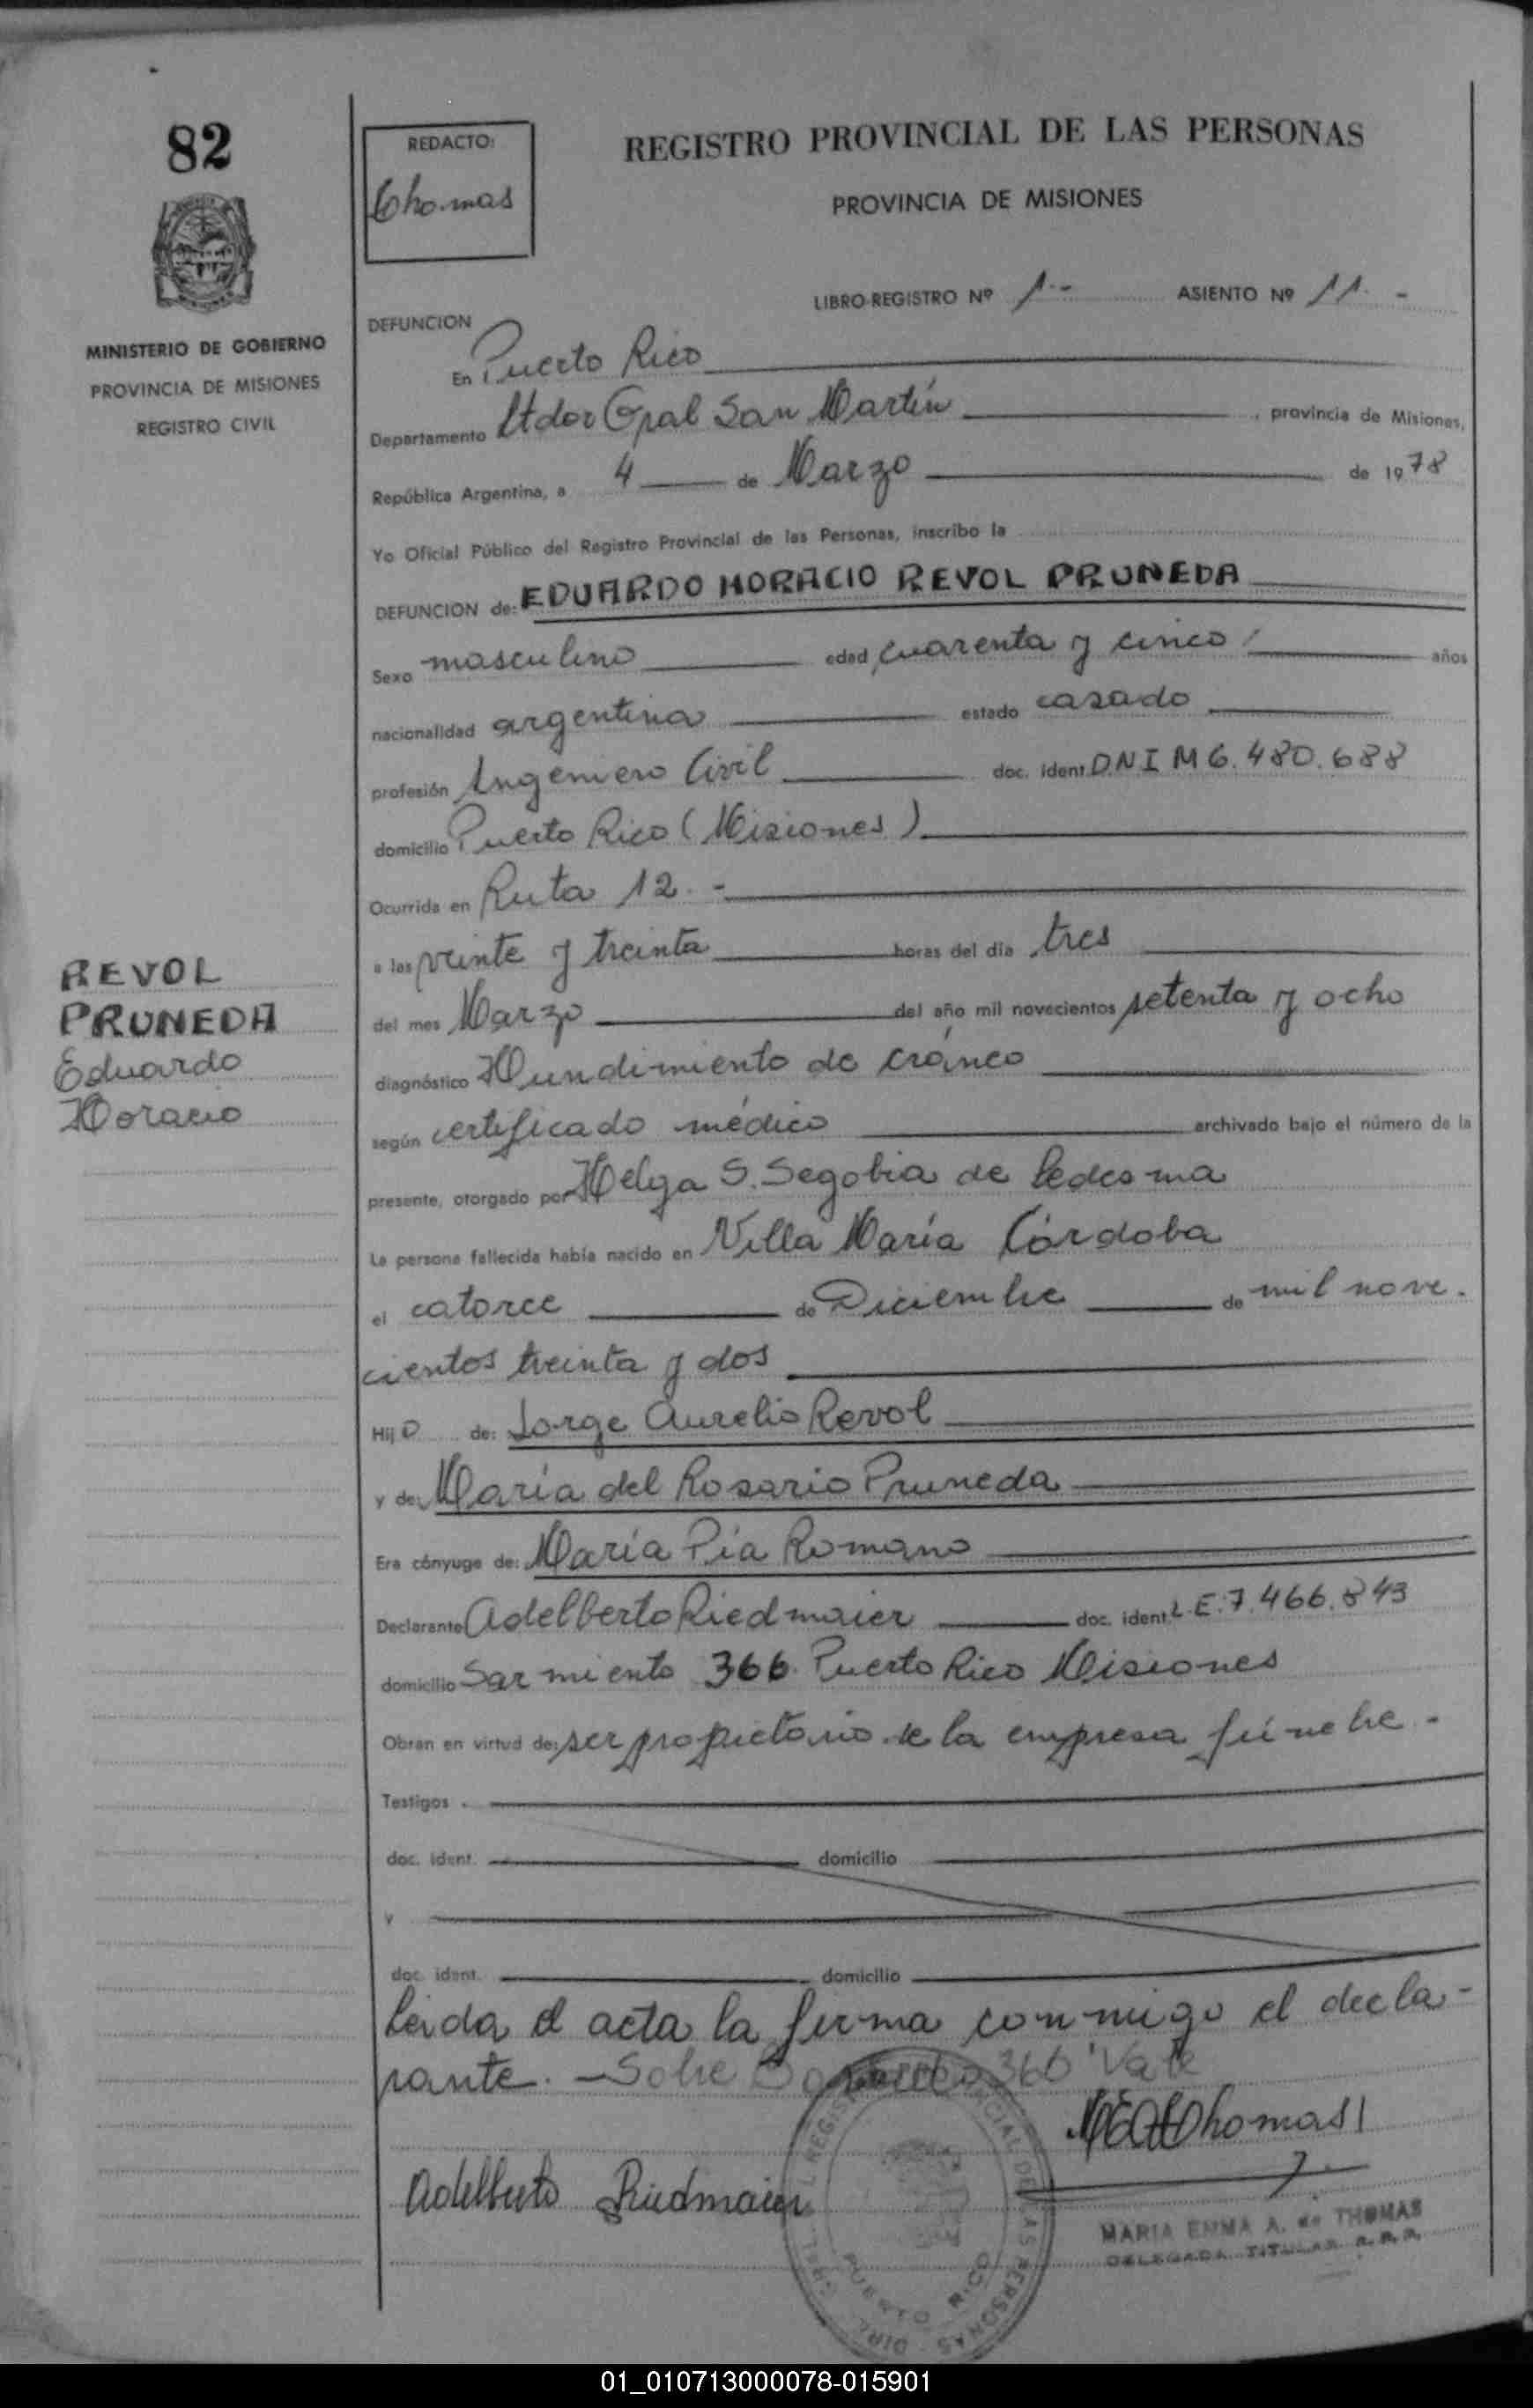 82
REDACTO:
Thomas
REGISTRO PROVINCIAL DE LAS PERSONAS
PROVINCIA DE MISIONES
MINISTERIO DE GOBIERNO
PROVINCIA DE MISIONES
REGISTRO CIVIL
LIBRO-REGISTRO Nº 1.- ASIENTO Nº 11.-
DEFUNCION
En Puerto Rico
Departamento Ltdor Gral San Martín, provincia de Misiones,
República Argentina, a 4 de Marzo de 1978
Yo Oficial Público del Registro Provincial de las Personas, inscribo la
DEFUNCION de: EDUARDO HORACIO REVOL PRUNEDA
Sexo masculino edad cuarenta y cinco años
nacionalidad argentina estado casado
profesión Ingeniero Civil doc. ident. D.N.I M 6.480.688
domicilio Puerto Rico (Misiones)
Ocurrida en Ruta 12.-
a las veinte y treinta horas del día tres
del mes Marzo del año mil novecientos setenta y ocho
diagnóstico Hundimiento de cráneo
según certificado médico archivado bajo el número de la
presente, otorgado por Helga S. Segobia de Ledesma
La persona fallecida había nacido en Villa María Córdoba
el catorce de Diciembre de mil nove.
cientos treinta y dos
Hijo de: Jorge Aurelio Revol
y de: María del Rosario Pruneda
Era cónyuge de: María Pía Romano
Declarante Adelberto Riedmaier doc. ident. L.E.7.466.843
domicilio Sarmiento 366. Puerto Rico Misiones
Obran en virtud de: ser propietario de la empresa fúnebre.-
Testigos
doc. ident. domicilio
y
doc. ident. domicilio
Leida el acta la firma conmigo el decla-
rante. - Sobre 366 Vale
REVOL
PRUNEDA
Eduardo
Horacio
Adelberto Riedmaier
Thomas
MARIA EMMA A. de THOMAS
DELEGADA TITULAR R. P. P.
PUERTO RICO
01_010713000078-015901